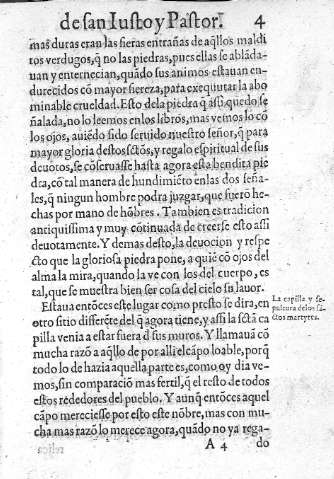 de san Iusto y Pastor. 4
mas duras eran las fieras entrañas de aq̃llos maldi
tos verdugos, q̃ no las piedras, pues ellas se ablãda-
uan y enternecian, quãdo sus animos estauan en-
durecidos cõ mayor fiereza, para exequutar la abo
minable crueldad. Esto dela piedra q̃ assi quedo se
ñalada, no lo leemos en los libros, mas vemos lo cõ
los ojos, auiẽdo sido seruido nuestro señor, q̃ para
mayor gloria destos sctõs, y regalo espiritual de sus
deuotos, se cõseruasse hasta agora esta bendita pie
dra, cõ tal manera de hundimiẽto en las dos seña-
les, q̃ ningun hombre podra juzgar, que fuerõ he-
chas por mano de hõbres. Tambien es tradicion
antiquissima y muy cõtinuada de creerse esto assi
deuotamente. Y demas desto, la deuocion y respe-
cto que la gloriosa piedra pone, a quiẽ cõ ojos del
alma la mira, quando la ve con los del cuerpo, es
tal, que se muestra bien ser cosa del cielo su lauor.
Estaua entõces este lugar como presto se dira, en
otro sitio differẽte del q̃ agora tiene, y assi la sctã ca
pilla venia a estar fuera d̃ sus muros. Y llamauã cõ
mucha razõ a aq̃llo de por alli el cãpo loable, porq̃
todo lo de hazia aquella parte es, como oy dia ve-
mos, sin comparaciõ mas fertil, q̃ el resto de todos
estos rededores del pueblo. Y aunq̃ entõces aquel
cãpo mereciesse por esto este nõbre, mas con mu-
cha mas razõ lo merece agora, quãdo no ya rega-
A 4 do
La capilla y se
pultura delos sã
ctos martyres.